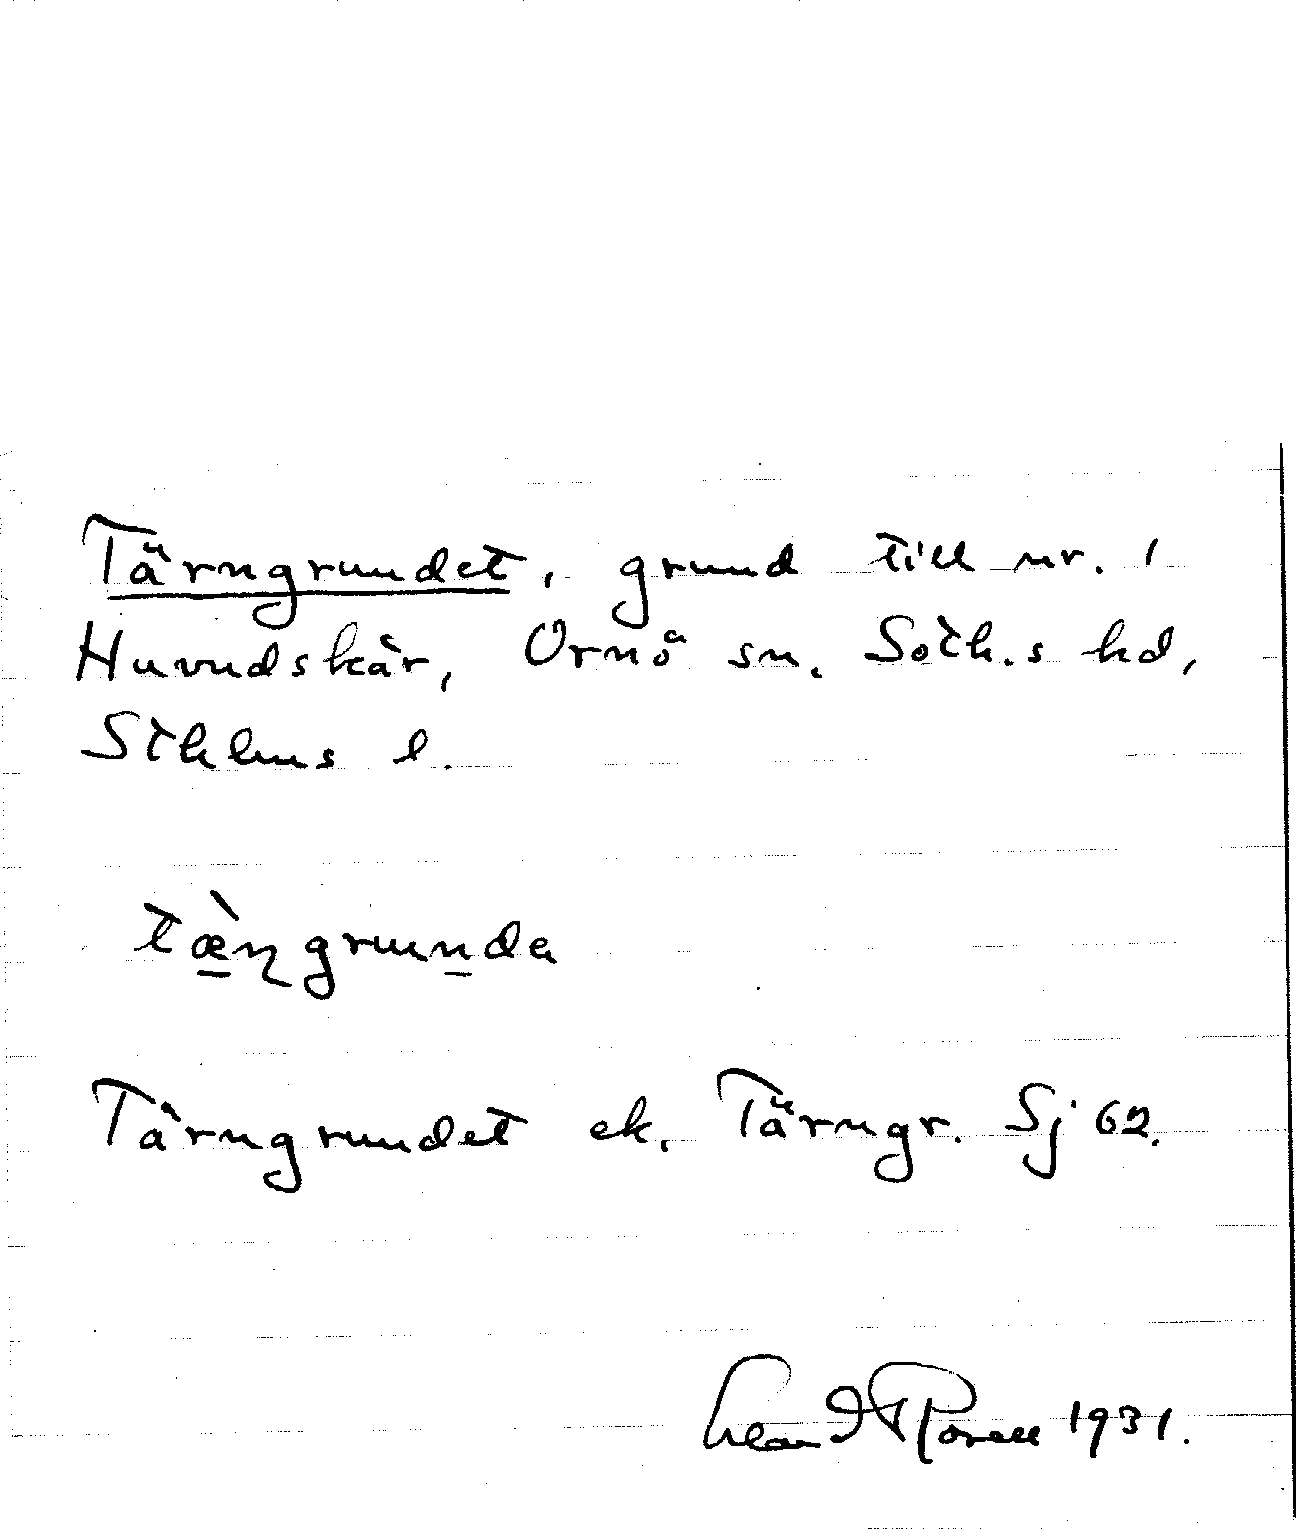 Tärngrundet, grund till nr. 1
Huvudskär, Ornö sn. Soth.s hd,
Sthlms l.
tæ̀ɳgrunda
Tärngrundet ek. Tärngr. Sj 62.
1931.